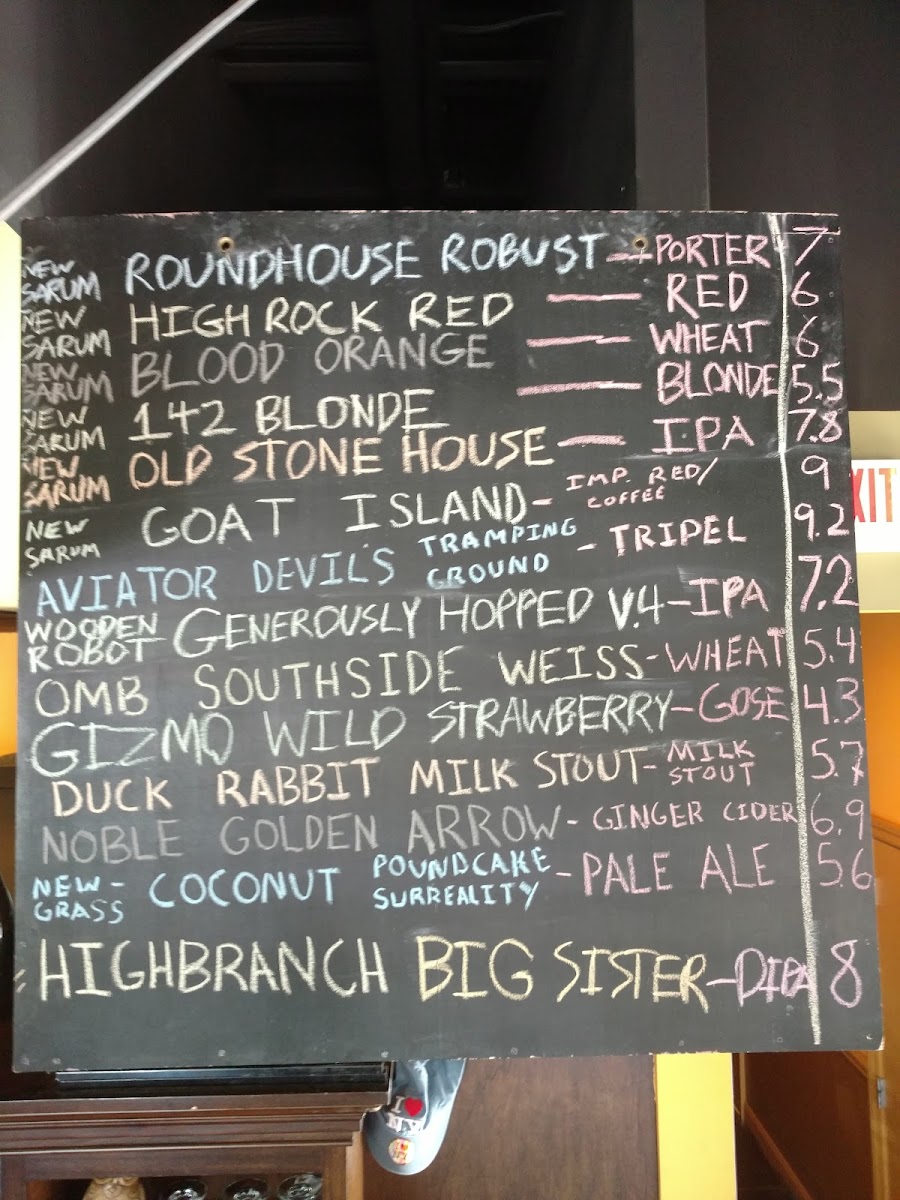 NEW SARUM ROUNDHOUSE ROBUST — PORTER 7
NEW SARUM HIGH ROCK RED — RED 6
NEW SARUM BLOOD ORANGE — WHEAT 6
NEW SARUM 142 BLONDE — BLONDE 5.5
NEW SARUM OLD STONE HOUSE — IPA 7.8
NEW SARUM GOAT ISLAND - IMP. RED/ COFFEE 9
AVIATOR DEVIL'S TRAMPING GROUND - TRIPEL 9.2
WOODEN ROBOT GENEROUSLY HOPPED V.4 - IPA 7.2
OMB SOUTHSIDE WEISS - WHEAT 5.4
GIZMO WILD STRAWBERRY - GOSE 4.3
DUCK RABBIT MILK STOUT - MILK STOUT 5.7
NOBLE GOLDEN ARROW - GINGER CIDER 6.9
NEW-GRASS COCONUT POUNDCAKE SURREALITY - PALE ALE 5.6
HIGHBRANCH BIG SISTER - DIPA 8
EXIT
I ♥ NY